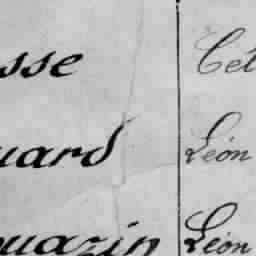 sse Cél
uard Léon
ouazin Léon